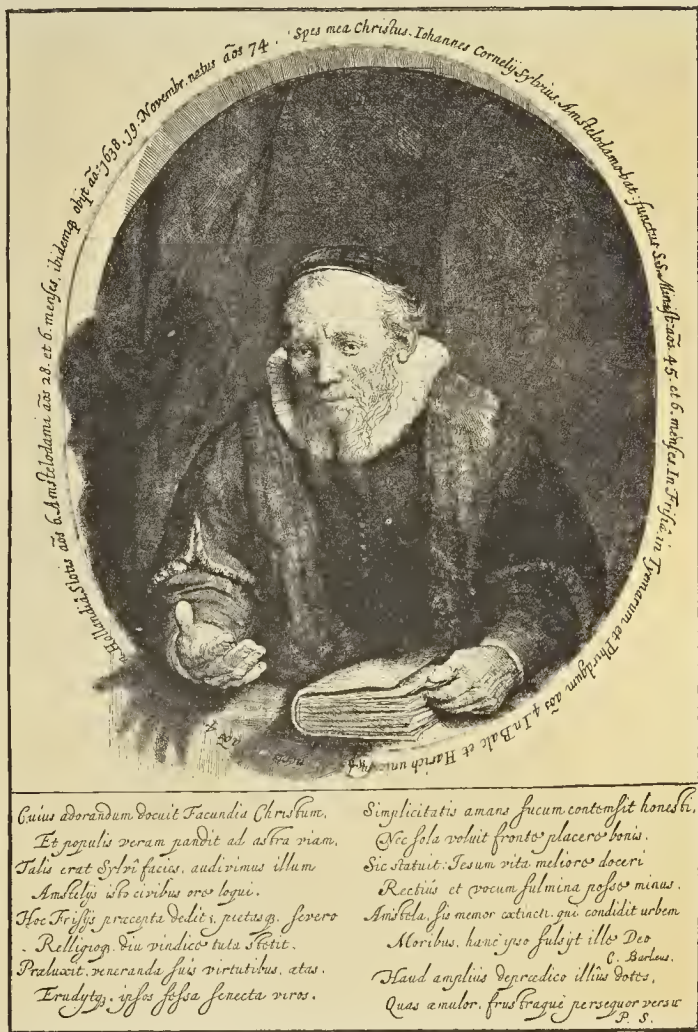 Spes mea Christus. Iohannes Cornelij Sylvius, Amstelodamobat: functus S.S. Minist: aõs 45. et 6. menses. In Frisiâ in Tyemarum et Phirdgum aõs 4. In Balc et Harich unic.
aõs 4
n Hollandiâ Slotis aõs 6. Amstelodami aõs 28. et 6. menses, ibidemq₃ obijt aõ: 1638. 19. Novembr. natus aõs 74.
Cuius adorandum docuit Facundia Christum,
Et populis veram pandit ad astra viam,
Talis erat Sylvî facies. audivimus illum
Amstelijs isto civibus ore loqui.
Hoc Frisijs præcepta dedit; pietasq₃ severo
Relligioq₃ diu vindice tuta stetit.
Præluxit, veneranda suis virtutibus, ætas.
Erudytq₃ ipsos fessa senecta viros.
Simplicitatis amans fucum contemsit honesti,
Nec sola voluit fronte placere bonis.
Sic statuit: Iesum vita meliore doceri
Rectiùs et vocum fulmina posse minus.
Amstela, sis memor extincti qui condidit urbem
Moribus, hanc ipso fulsijt ille Deo
C. Barleus.
Haud amplius deprædico illius dotes,
Quas æmulor, frustraque persequor versu
P. S.